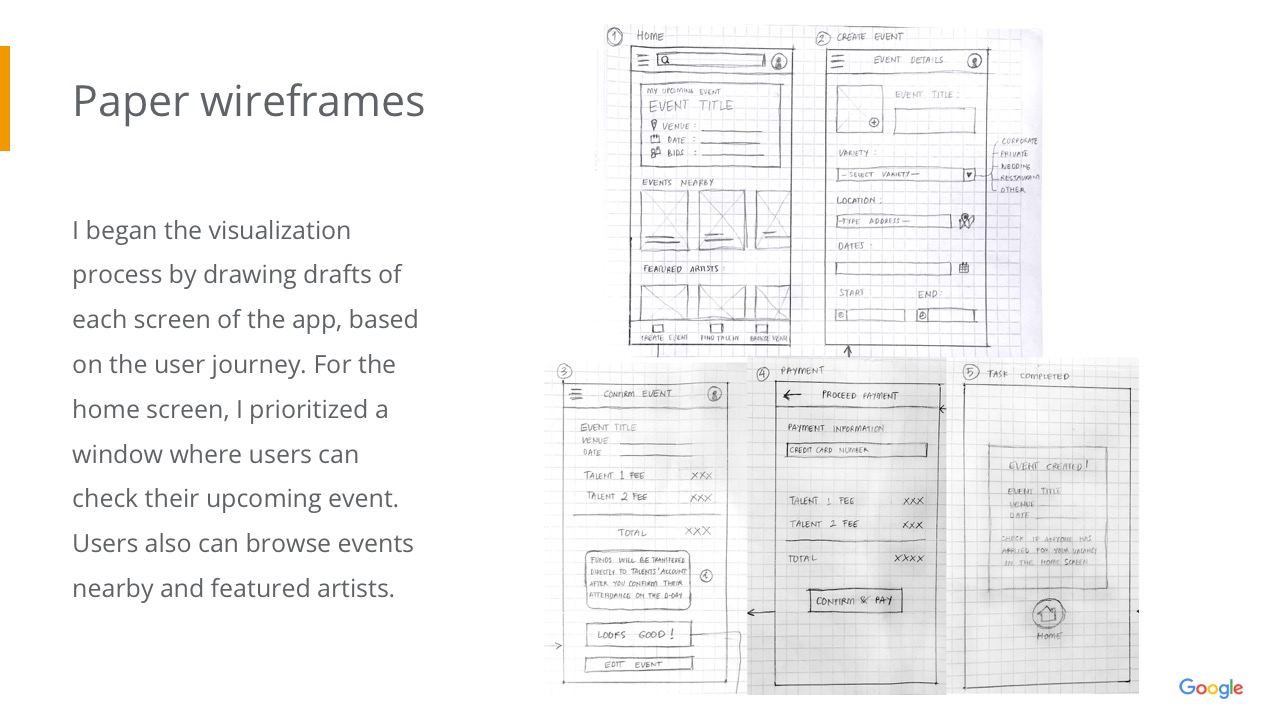 Paper wireframes
I began the visualization
process by drawing drafts of
each screen of the app, based
on the user journey. For the
home screen, I prioritized a
window where users can
check their upcoming event.
Users also can browse events
nearby and featured artists.
1 HOME
MY UPCOMING EVENT
EVENT TITLE
VENUE :
DATE :
BIDS :
EVENTS NEARBY
FEATURED ARTISTS :
CREATE EVENT FIND TALENT BROWSE VENUE
2 CREATE EVENT
EVENT DETAILS
EVENT TITLE :
VARIETY :
-SELECT VARIETY-
CORPORATE
PRIVATE
WEDDING
RESTAURANT
OTHER
LOCATION :
-TYPE ADDRESS-
DATES :
START END :
3
CONFIRM EVENT
EVENT TITLE
VENUE
DATE
TALENT 1 FEE XXX
TALENT 2 FEE XXX
TOTAL XXX
FUNDS WILL BE TRANSFERED
DIRECTLY TO TALENTS' ACCOUNT
AFTER YOU CONFIRM THEIR
ATTENDANCE ON THE D-DAY
i
LOOKS GOOD!
EDIT EVENT
4 PAYMENT
PROCEED PAYMENT
PAYMENT INFORMATION
CREDIT CARD NUMBER
TALENT 1 FEE XXX
TALENT 2 FEE XXX
TOTAL XXXX
CONFIRM & PAY
5 TASK COMPLETED
EVENT CREATED!
EVENT TITLE
VENUE
DATE
CHECK IF ANYONE HAS
APPLIED FOR YOUR VACANCY
IN THE HOME SCREEN
HOME
Google